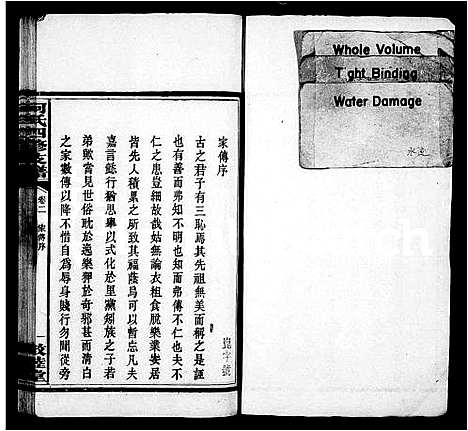 家傳序
古之君子有三恥焉其先祖無美而稱之是誣
也有善而弗知不明也知而弗傳不仁也夫不
仁之患豈細故哉姑無論衣租食脫樂業安居
皆先人積累之所致其福蔭烏可以暫忘凡夫
嘉言懿行猶思舉以式化於里黨矧族之子若
弟歟當見世俗耽於逸樂狎於奇邪甚而清白
之家數傳以降不惜自為辱身賤行勿聞從旁
何氏四修支譜
卷二
家傳序
一
敦睦堂
崑字號
Whole Volume
Tight Binding
Water Damage